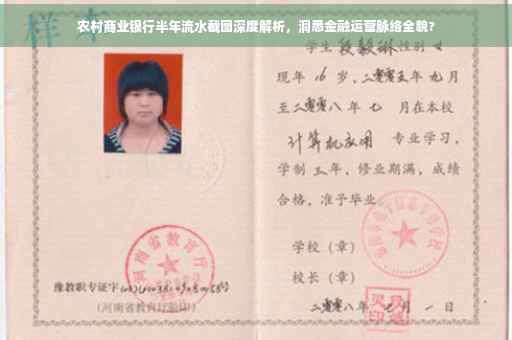 农村商业银行半年流水截图深度解析，洞悉金融运营脉络全貌？
样本
学生 段毅琳 性别 女
现年 16 岁，二零零五年 九月
至二零零八年 七 月在本校
计算机应用 专业学习，
学制 三年，修业期满，成绩
合格，准予毕业
学校（章）
校长（章）
二零零八年 七 月 一 日
河南省教育厅
豫教职专证字
（河南省教育厅验印）